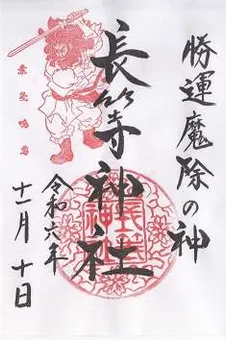 勝運魔除の神
長等神社
令和六年
十一月十日
素戔嗚尊